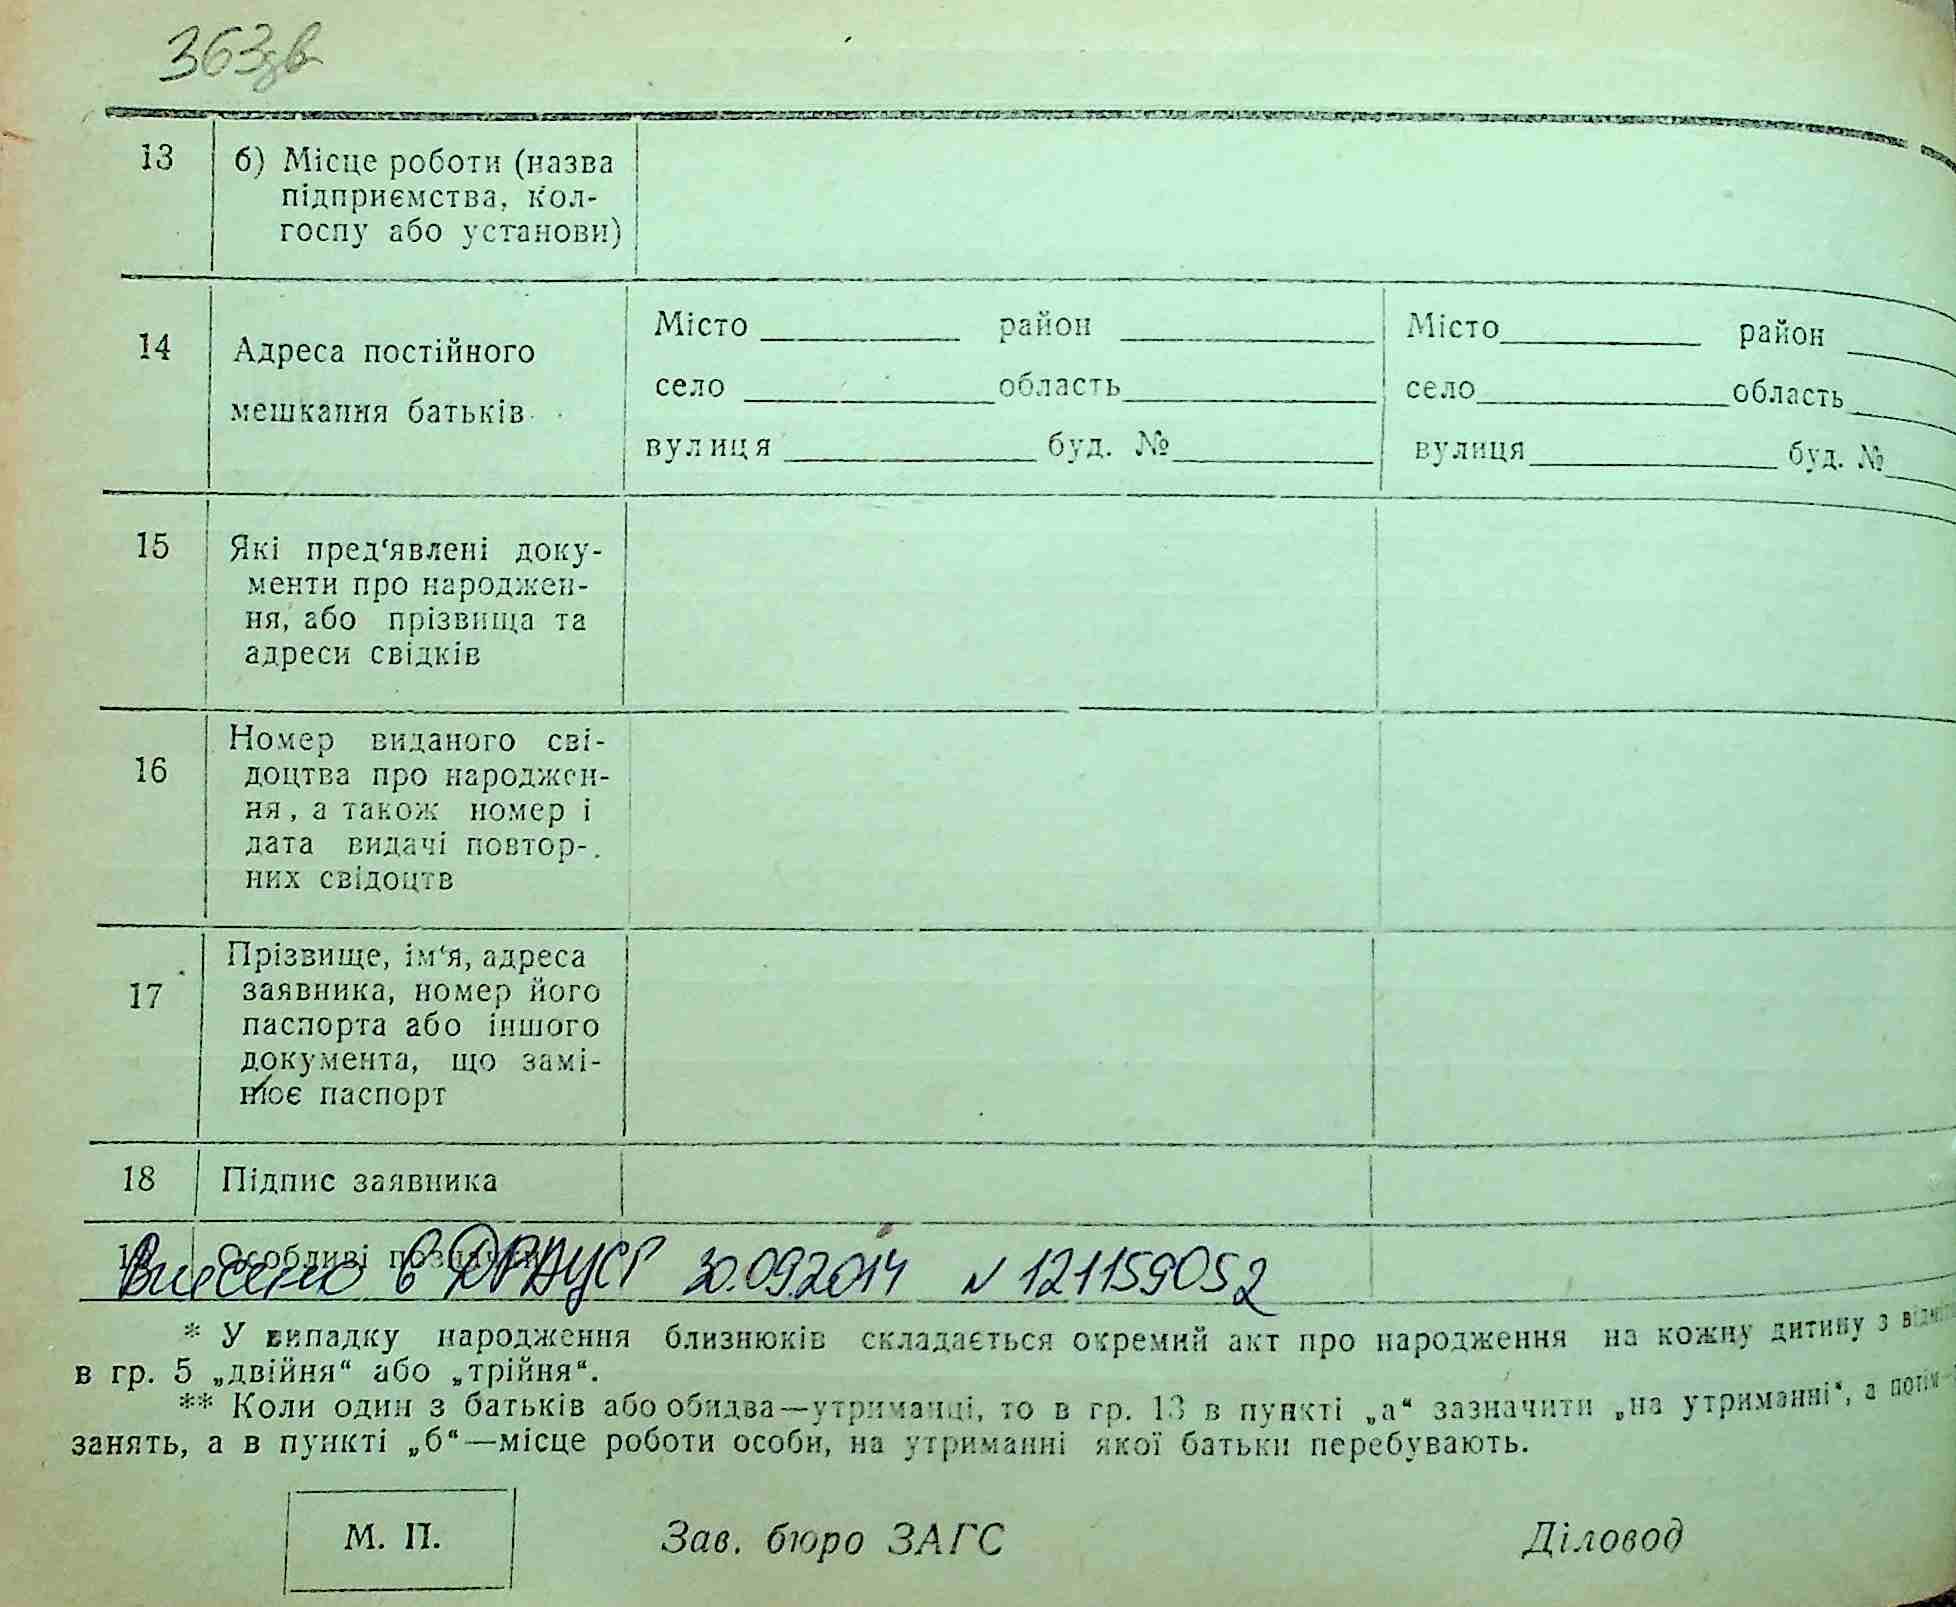 363зв
13 б) Місце роботи (назва
підприємства, кол-
госпу або установи)
14 Адреса постійного
мешкання батьків
Місто район Місто район
село область село область
вулиця буд. № вулиця буд. №
15 Які пред'явлені доку-
менти про народжен-
ня, або прізвища та
адреси свідків
16 Номер виданого сві-
доцтва про народжен-
ня, а також номер і
дата видачі повтор-
них свідоцтв
17 Прізвище, ім'я, адреса
заявника, номер його
паспорта або іншого
документа, що замі-
нює паспорт
18 Підпис заявника
Особливі
Внесено в ДРАЦСГ 30.09.2014 N 121159052
* У випадку народження близнюків складається окремий акт про народження на кожну дитину з
в гр. 5 „двійня“ або „трійня“.
** Коли один з батьків або обидва—утриманці, то в гр. 13 в пункті „а“ зазначити „на утриманні“, а потім—
занять, а в пункті „б“—місце роботи особи, на утриманні якої батьки перебувають.
М. П. Зав. бюро ЗАГС Діловод